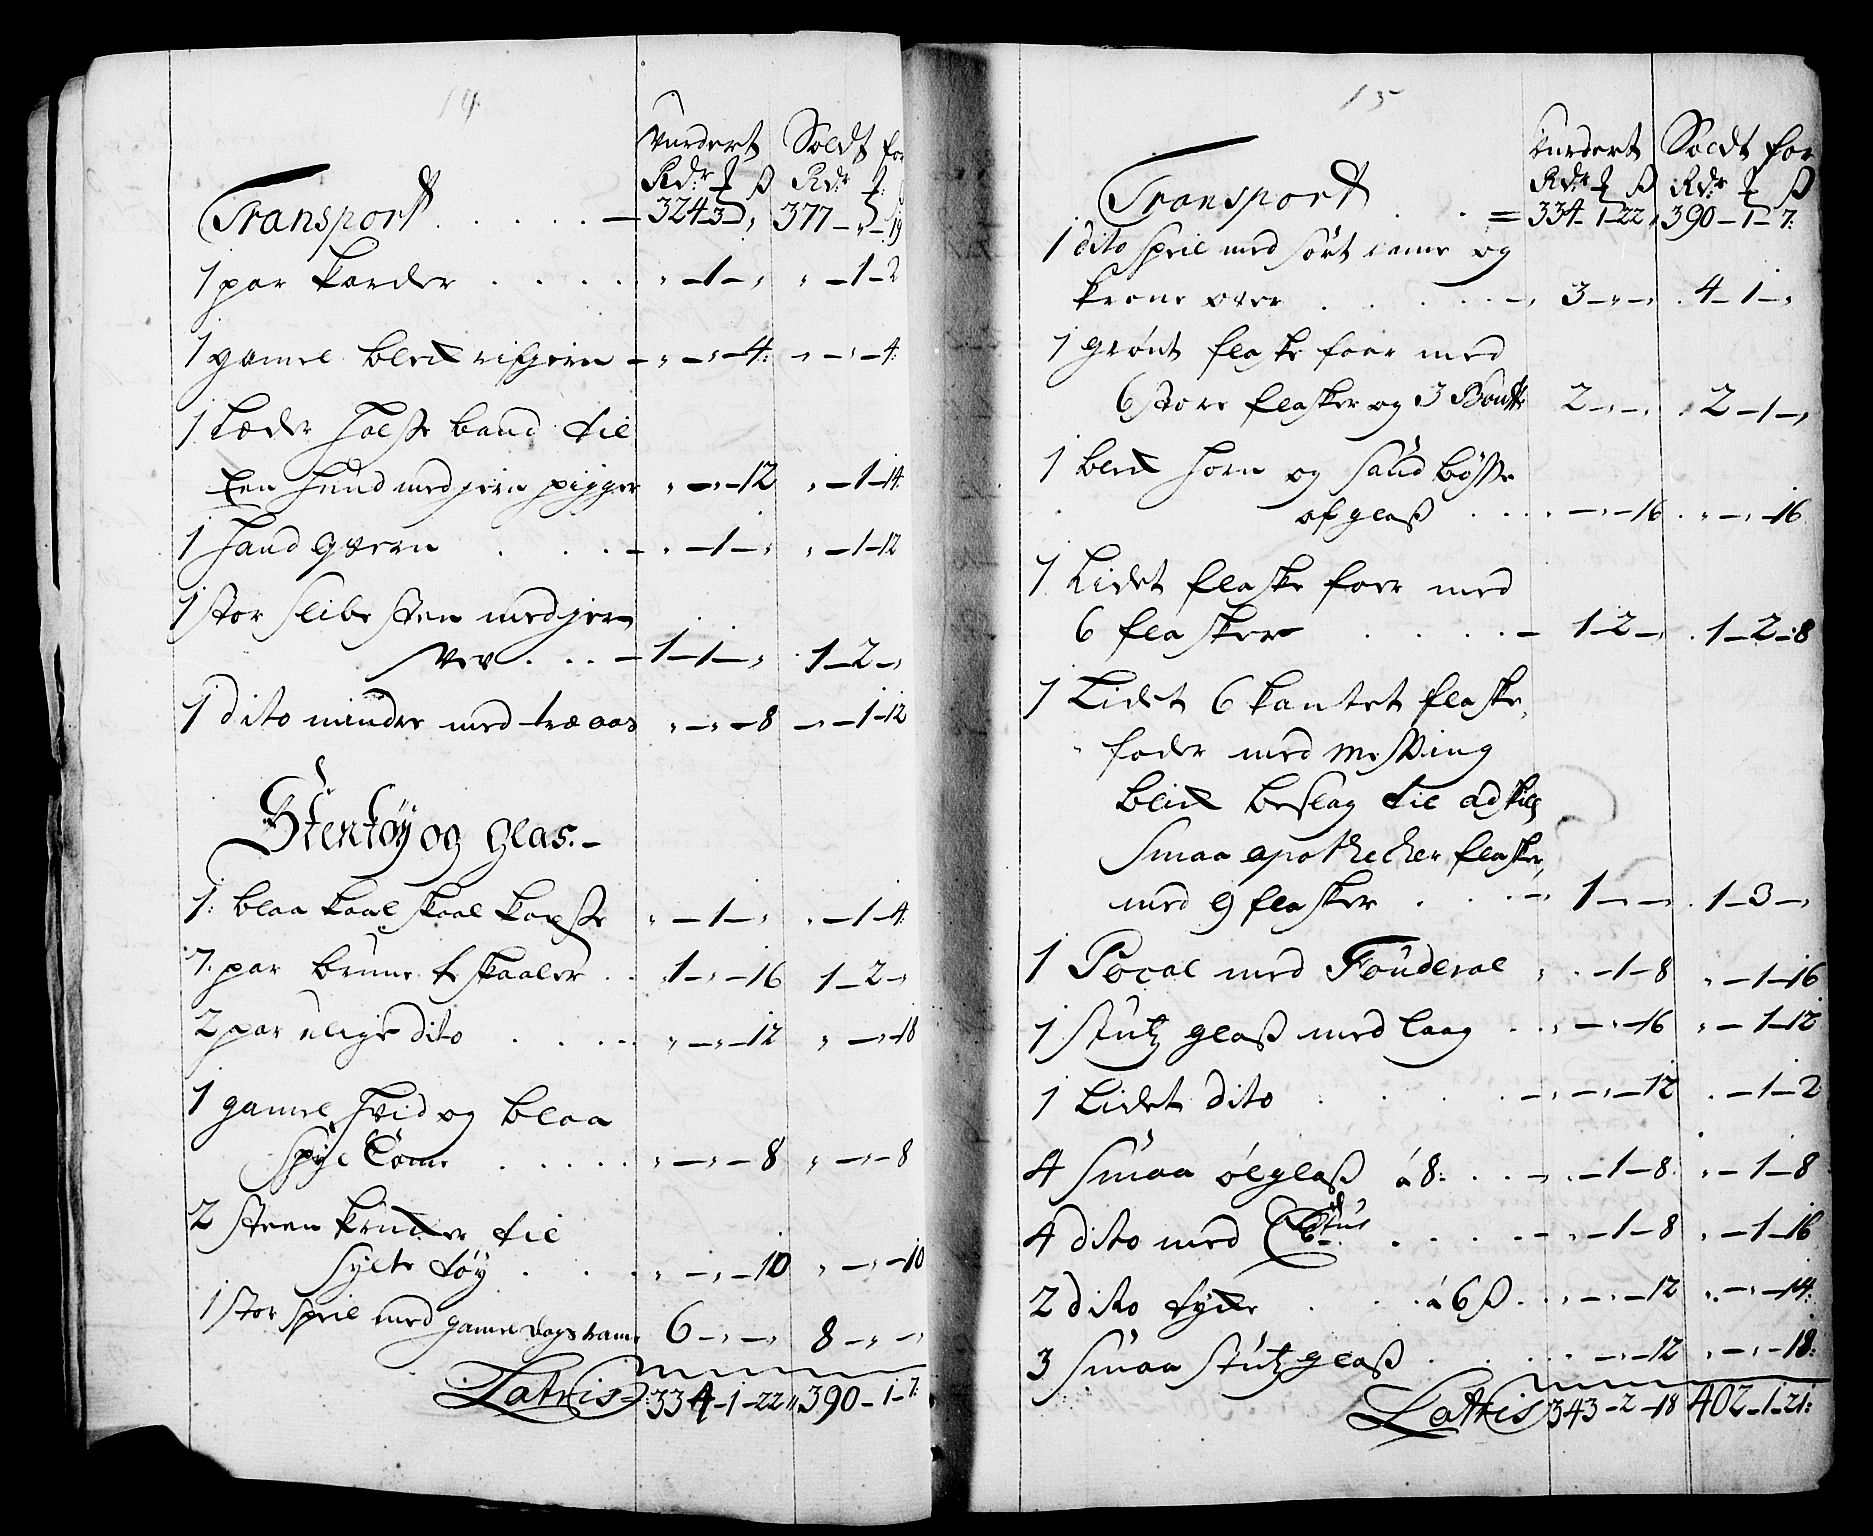 14
Vurdert Soldt for
Rdr ₰ ß Rdr ₰
Transport . . . . . — 324–3–„ 377–„–19
1 par karder . . . . . „–1–„ „–1–2
1 gamel bleck rifjern – „–„–4: „–„–4:
1 Læder halsse band til
Een hund med jern pigger „–„–12 „–1–14:
1 hand qvern . . . – „–1–„ „–1–12
1 stor slibe steen med jern
Vev . . . – 1–1–„ 1–2–„
1 dito mindre med træ aas „–„–8 „–1–12
Stentøy og glas.–
1: blaa kaal skaal kopste „–1–„ „–1–4:
7. par brune te skaaler . . 1–„–16 1–2–„
2 par ulige dito . . . . „–„–12 „–„–18
1 gamel hvid og blaa
Spyl Come . . . . . „–„–8 „–„–8
2 steen krucker til
Sylte tøy . . . „–„–10 „–„–10
1 stor speil med gamel dags rame 6–„–„ 8–„–„
Latris– 334–1–22 „ 390–1–7:
15
Vurdert Soldt for
Rdr ₰ ß Rdr ₰ ß
Transport . . = 334–1–22 „ 390–1–7:
1 dito speil med sort rame og
krone over . . . . . – 3–„–„ 4–1–„
1 grønt flaske foer med
6 store flasker og 3 2–„–„ 2–1–„
1 bleck horn og sand bøsse
af glas . . . . –„–16 „–„–16
1 Lidet flaske foer med
6 flasker . . . . – 1–2–„ 1–2–8
1 Lidet 6 kantet flaske
foder med Messing
bleck beslag til adskil
Smaa apothecker flasker,
med 9 flasker . . . – 1–„–„ 1–3–„
1 Pocal med Fouderal „–1–8 „–1–16
1 stutz glas med laag . . „–„–16 „–1–12
1 Lidet dito . . . . – „–„–12 „–1–2
4 Smaa ølglas á 8: . . – „–1–8: „–1–8
4 dito med . . . . – „–1–8 „–1–16
2 dito tycke . . . á 6 ß . „–„–12 „–„–14:
3 Smaa stutz glas . . . . –„–12 „–„–18:
Lattris 343–2–18 402–1–21: